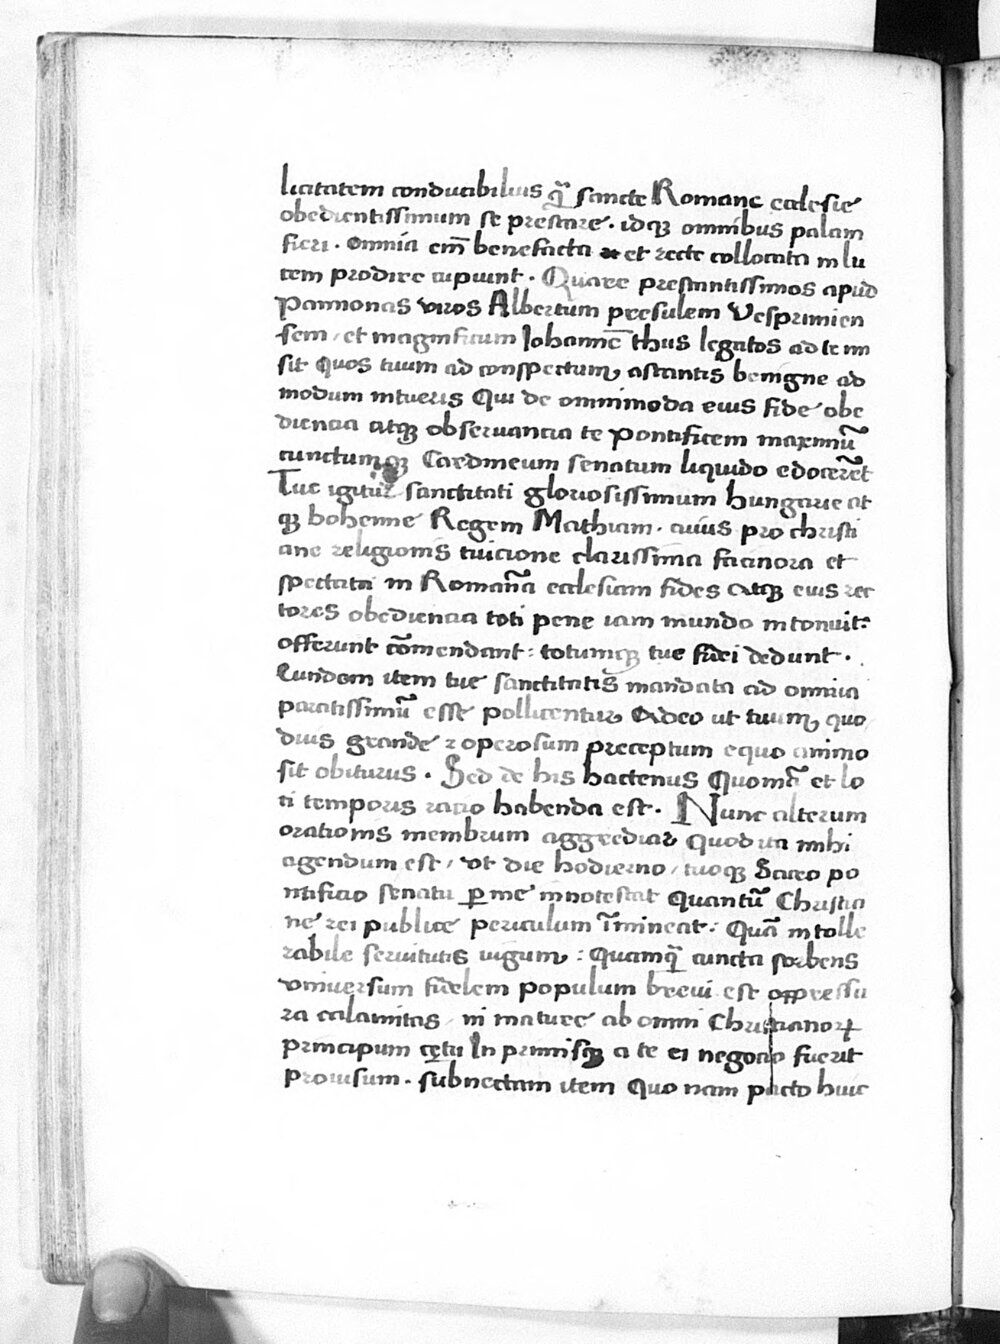 licitatem conducibilius qᷓ sancte Romane ecclesie
obedientissimum se prestare · idqꝫ omnibus palam
fieri · omnia em̄ benefacta et recte collocata in lu
cem prodire cupiunt · Quare prestantissimos apud
pannonas viros Albertum presulem Vesprimien
sem / et magnificum Johannē thus legatos ad te mi
sit Quos tuum ad conspectum astantis benigne ad
modum intueris Qui de omnimoda eius fide obe
diencia atqꝫ obseruancia te pontificem maximū
cunctumqꝫ Cardineum senatum liquido edocerēt
Tue igitur sanctitati gloriosissimum hungarie at
qꝫ bohemie Regem Mathiam · cuius pro christi
ane religionis tuicione clarissima facinora et
spectata in Romanā ecclesiam fides atqꝫ eius rec
tores obediencia toti pene iam mundo intonuit:
offerunt cōmendant : totumqꝫ tue fidei dedunt ·
Eundem item tue sanctitatis mandata ad omnia
paratissimū esse pollicentur Adeo ut tuum quo
duis grande ⁊ operosum preceptum equo animo
sit obiturus · Sed de his hactenus Quoniā et lo
ci temporis racio habenda est · Nunc alterum
orationis membrum aggrediar Quod ita mihi
agendum est / vt die hodierno / tuoqꝫ Sacro po
ntificio senatu ꝑ me innotescat quantū Christia
ne rei publice periculum īmineat : Quā intolle
rabile seruitutis iugum : Quamqᷓ cuncta sorbens
vniuersum fidelem populum breui est oppressu
ra calamitas / ni mature ab omni Christianoꝝ
principum cętu In primisqꝫ a te ei negocio fuerit
prouisum · subnectam item Quo nam pacto huic